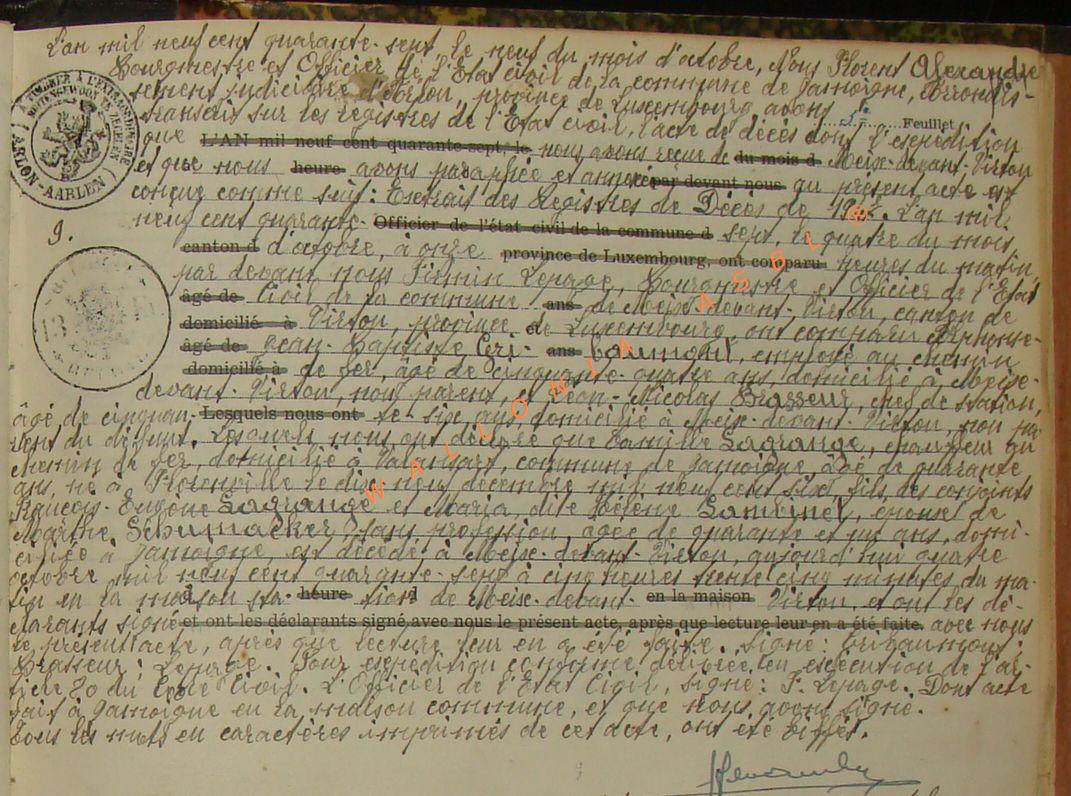 L'an mil neuf cent quarante-sept le neuf du mois d'octobre, Nous Florent Alexandre
Bourgmestre et Officier de l'Etat civil de la commune de Jamoigne, Arrondis-
sement judiciaire d'Arlon, province de Luxembourg avons
transcrit sur les registres de l'Etat civil, l'acte de décès dont l'expédition
Feuillet
que L'AN mil neuf cent quarante-sept, le nous avons reçue de du mois d Meix-devant-Virton
et que nous heure avons paraphée et annexée par devant nous au présent acte est
conçue comme suit: Extrait des Registres de Décès de 1947. L'an mil
9. neuf cent quarante- Officier de l'état civil de la commune d sept, le quatre du mois
canton d d'octobre, à onze province de Luxembourg, ont comparu heures du matin
par devant nous Firmin Lepage, Bourgmestre et Officier de l'Etat
âgé de Civil de la commune ans de Meix-devant-Virton, canton de
domicilié à Virton, province de Luxembourg, ont comparu Alphonse-
âgé de Jean-Baptiste Gri- ans baumont, employé au chemin
domicilié à de fer, âgé de cinquante-quatre ans, domicilié à Meix-
devant-Virton, non parent, et Léon-Nicolas Brasseur, chef de station,
âgé de cinquan- Lesquels nous ont te-six ans, domicilié à Meix-devant-Virton, non pa-
rent du défunt. Lesquels nous ont déclaré que Camille Lagrange, chauffeur au
chemin de fer, domicilié à Valansart, commune de Jamoigne, âgé de quarante
ans, né à Florenville le dix neuf décembre mil neuf cent six, fils des conjoints
François-Eugène Lagrange et Maria, dite Hélène Lambinet, époux de
Marthe Schumacker, sans profession, âgée de quarante et un ans, domi-
ciliée à Jamoigne, est décédé à Meix-devant-Virton, aujourd'hui quatre
octobre mil neuf cent quarante-sept à cinq heures trente cinq minutes du ma-
tin en la maison sta- heure tion d de Meix-devant- en la maison Virton, et ont les dé-
clarants signé et ont les déclarants signé avec nous le présent acte, après que lecture leur en a été faite. avec nous
le présent acte, après que lecture leur en a été faite. Signé: Gribaumont;
Brasseur; Lepage. Pour expédition conforme délivrée en exécution de l'ar-
ticle 80 du Code Civil. L'Officier de l'Etat Civil, signé: F. Lepage. Dont acte
fait à Jamoigne en la maison commune, et que nous avons signé.
Tous les mots en caractères imprimés de cet acte, ont été biffés.
WALLONIA ASBL